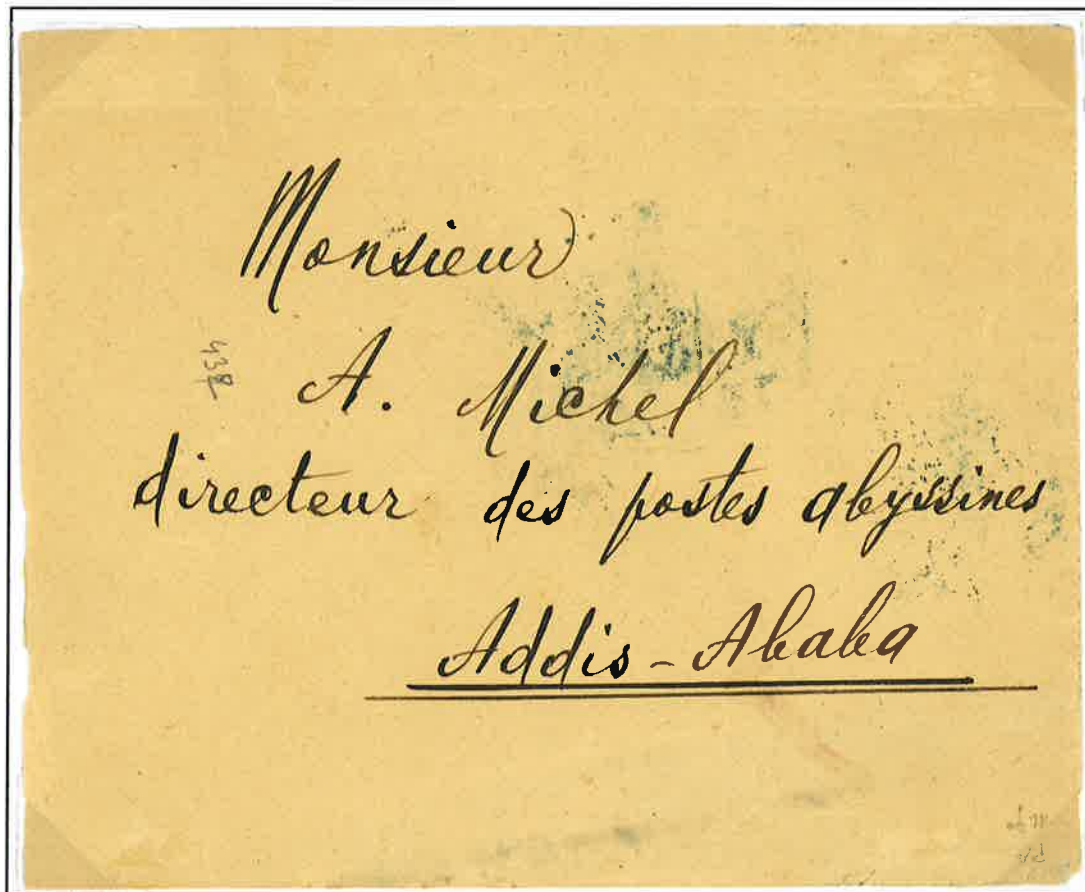 Monsieur
A. Michel
directeur des postes abyssines
Addis-Ababa